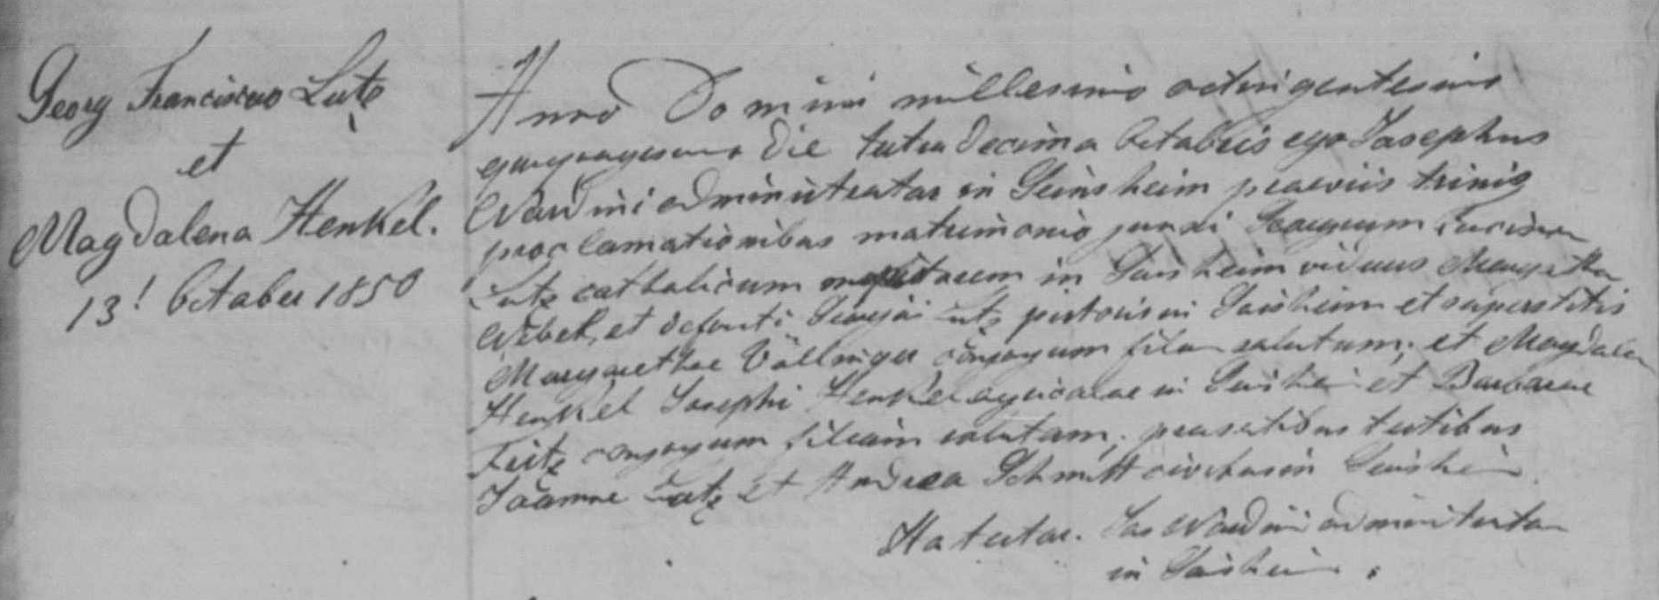 Georg Franciscus Lutz
et
Magdalena Henkel.
13! October 1850
Anno Domini millesimo octingentesimo
quinquagesimo die tertia decima Octobris ego Josephus
Nardini administrator in Geinsheim praeviis trinis
proclamationibus matrimonio junxi Georgium Franciscum
Lutz catholicum in Geinsheim viduus Margaretha
Weber, et defuncti Georgii Lutz pistoris in Geinsheim et superstitis
Margarethae Völlinger conjugum filium solutum; et Magdalenam
Henkel Josephi Henkel agricolae in Geinsheim et Barbarae
conjugum filiam solutam; praesentibus testibus
Joanne Lutz et Andrea Schmitt civibus in Geinsheim.
Ita testor. Jos Nardini administrator
in Geinsheim.